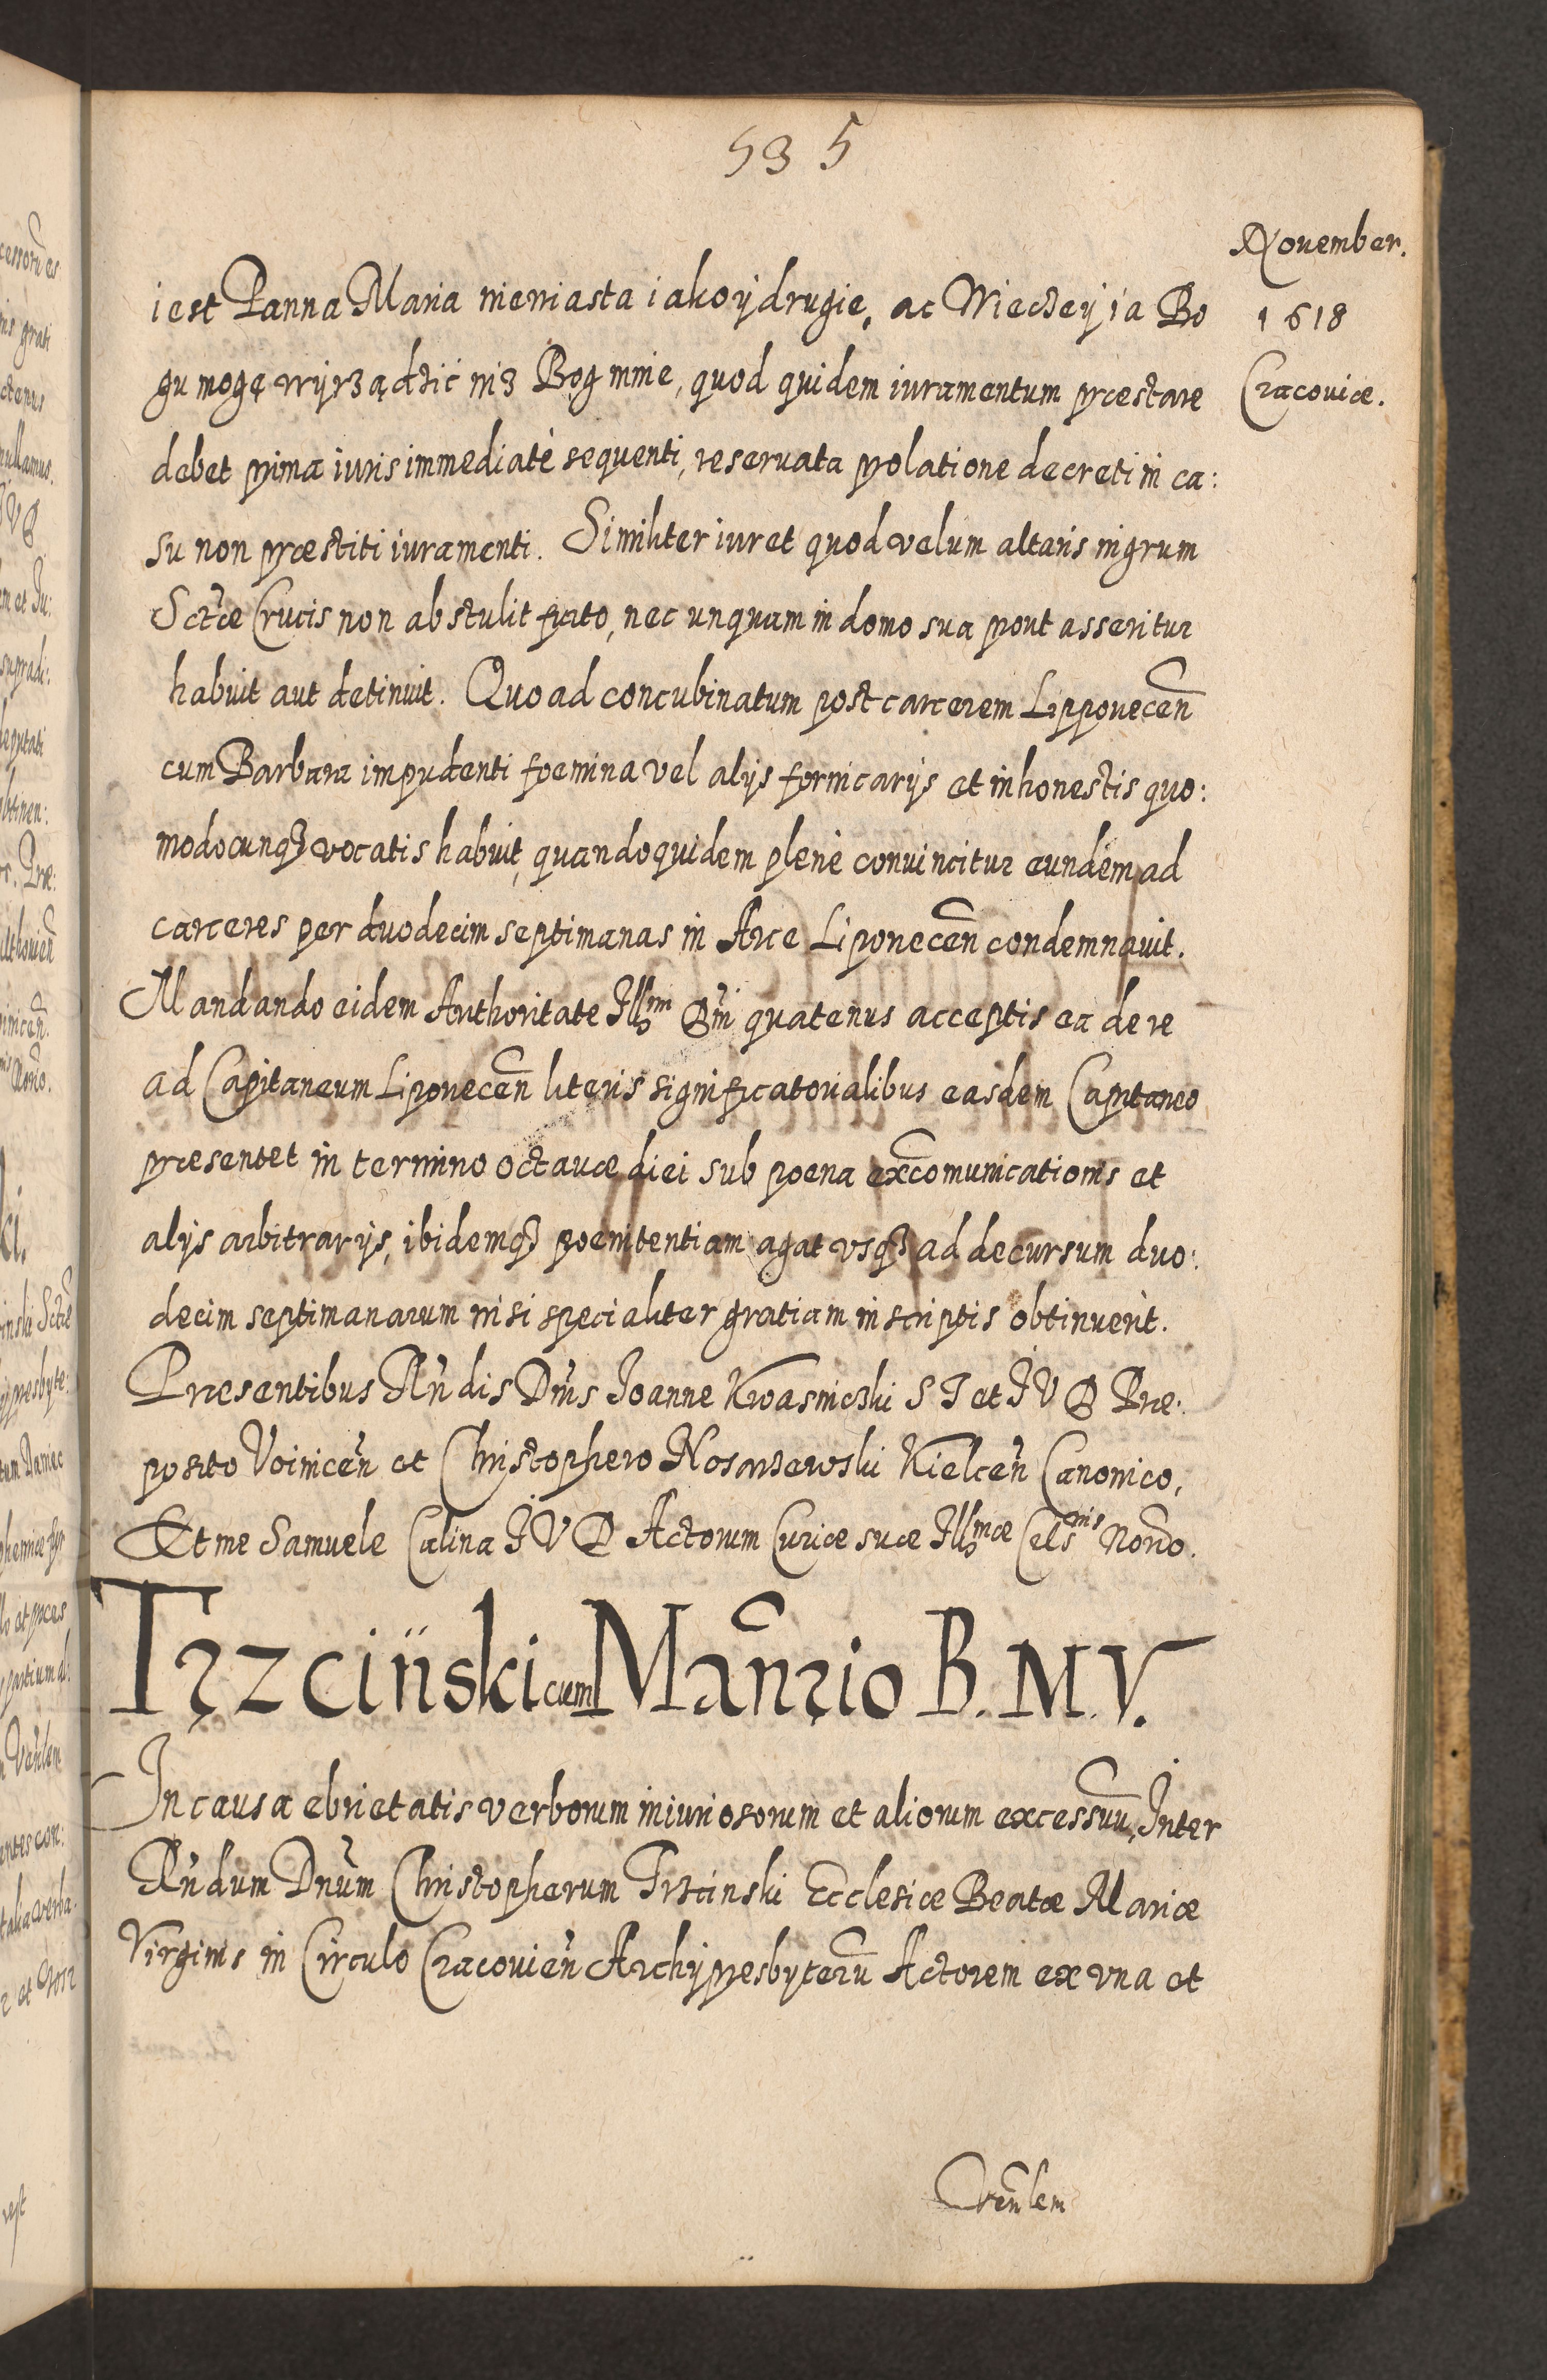 535
November.
1618
Cracoviæ.
iest Panna Maria niewiasta iako ÿ drugie, ac Wiecżeÿ ia Bo
gu mogę wÿrżądżić niż Bog mnie, quod quidem iuramentum præstare
debet prima iuris immediatè sequenti, reseruata prolatione decreti in ca:
su non præstiti iuramenti. Similiter iuret quod velum altaris nigrum
Sctæ Crucis non abstulit furto, nec unquam in domo sua prout asseritur
habuit aut detinuit. Quo ad concubinatum post carcerem Lippouecen̄
cum Barbara impudenti foemina vel alijs fornicarijs et inhonestis quo:
modocunqꝫ vocatis habuit, quandoquidem plenè conuincitur eundem ad
carceres per duodecim septimanas in Arce Lipouecen̄ condemnauit.
Mandando eidem Authoritate Illmi Dm̄i quatenus acceptis ea de re
ad Capitaneum Lipouecen̄ literis significatorialibus easdem Capitaneo
præsentet in termino octauæ diei sub poena exc̄omunicationis et
alijs arbitrarijs, ibidemqꝫ poenitentiam agat vsqꝫ ad decursum duo:
decim septimanarum nisi specialiter gratiam in scriptis obtinuerit.
Præsentibus Rn̄dis Dn̄is Ioanne Kwasnicżki S T et I V D Præ:
posito Voinicen̄ et Christophero Nosarżewski Kielcen̄ Canonico,
Et me Samuele Calina I V D Actorum Curiæ suæ Illmæ Cels̄nis Nor̄io.
Trzciński cum Man̄rio B. M. V.
In causa ebrietatis verborum iniuriosorum et aliorum excessuū, Inter
Rn̄dum Dnūm Christopherum Trżcinski Ecclesiæ Beatæ Mariæ
Virginis in Circulo Cracouien̄ Archÿpresbyterū Actorem ex vna et